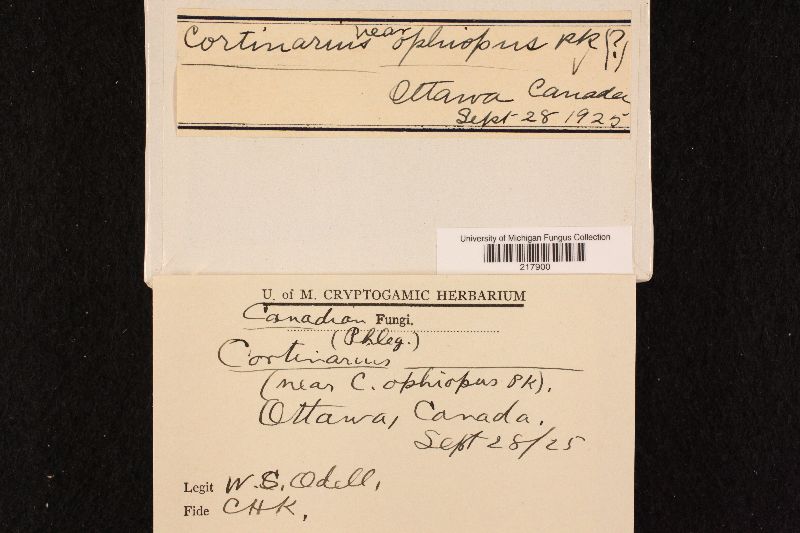 Cortinarius near ophiopus Pk (?)
Ottawa Canada
Sept 28 1925
University of Michigan Fungus Collection
217900
U. of M. CRYPTOGAMIC HERBARIUM
Canadian Fungi.
(Phleg.)
Cortinarius
(near C. ophiopus PK).
Ottawa, Canada.
Sept 28/25
Legit W.S. Odell.
Fide CHK.